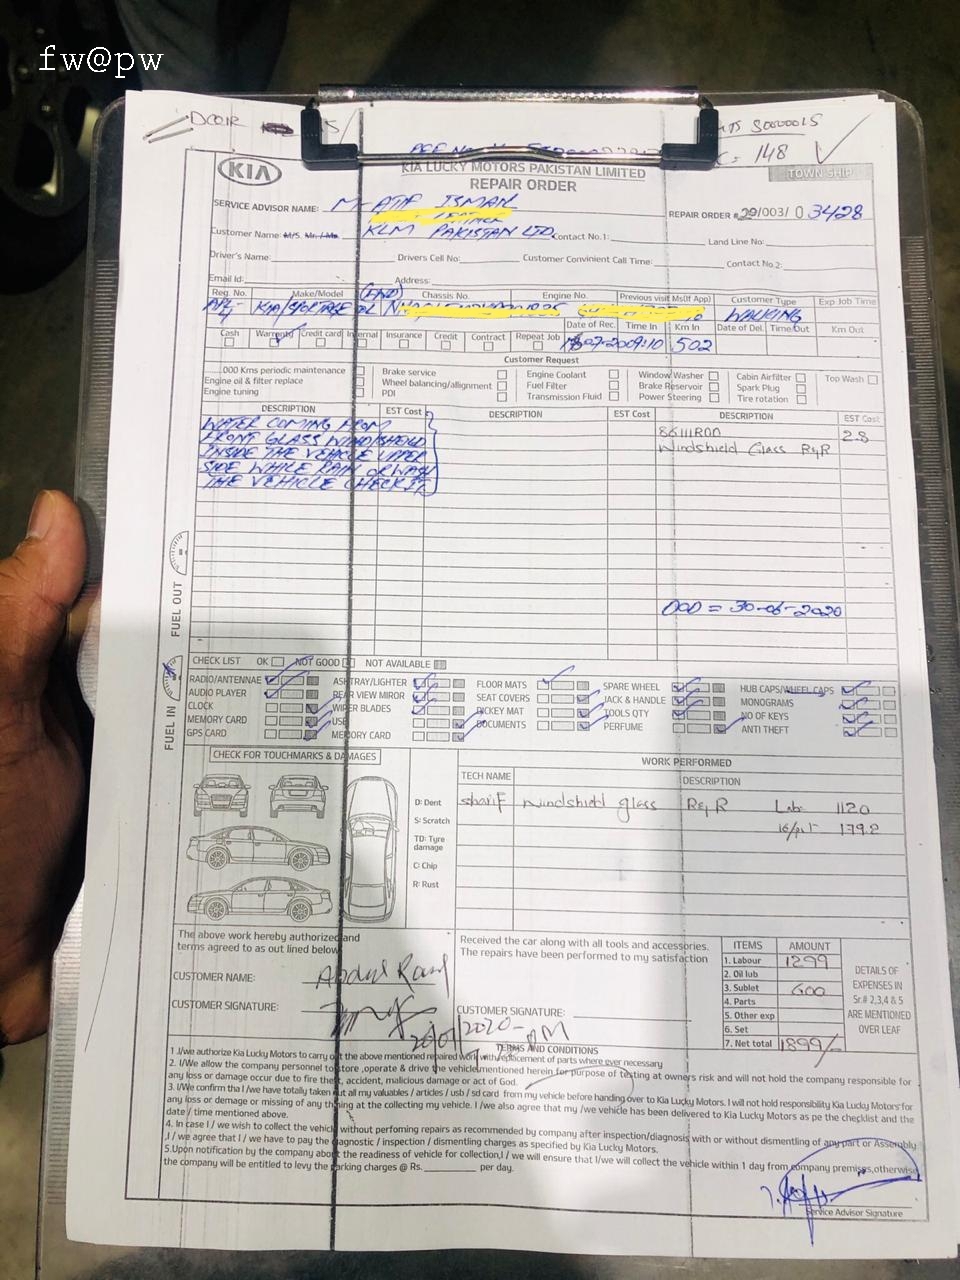 fw@pw
DOOR
30000015
= 148
KIA
KIA LUCKY MOTORS PAKISTAN LIMITED
TOWN SHIP
REPAIR ORDER
SERVICE ADVISOR NAME: ATIF
REPAIR ORDER # 29/003/0 03428
Customer Name: M/S. Mr. / Ms. KLM PAKISTAN LTD Contact No.1: Land Line No:
Driver's Name: Drivers Cell No: Customer Convinient Call Time: Contact No.2:
Email Id: Address:
Reg. No. Make/Model Chassis No. Engine No. Previous visit Ms(If App) Customer Type Exp Job Time
KIA/SPORTAGE WALKING
Cash Warranty Credit card Internal Insurance Credit Contract Repeat Job Date of Rec. Time In Km In Date of Del. Time Out Km Out
502
Customer Request
.000 Kms periodic maintenance Brake service Engine Coolant Window Washer Cabin Airfilter Top Wash
Engine oil & filter replace Wheel balancing/allignment Fuel Filter Brake Reservoir Spark Plug
Engine tuning PDI Transmission Fluid Power Steering Tire rotation
DESCRIPTION EST Cost DESCRIPTION EST Cost DESCRIPTION EST Cost
WATER COMING FROM 86111R00 2.8
FRONT GLASS WINDSHEILD Windshield Glass R&R
INSIDE THE VEHICLE UPPER
SIDE WHILE RAIN OR WASH
THE VEHICLE CHECK IT
FUEL OUT
DOD = 30-06-2020
FUEL IN
CHECK LIST OK NOT GOOD NOT AVAILABLE
RADIO/ANTENNAE ASHTRAY/LIGHTER FLOOR MATS SPARE WHEEL HUB CAPS/WHEEL CAPS
AUDIO PLAYER REAR VIEW MIROR SEAT COVERS JACK & HANDLE MONOGRAMS
CLOCK WIPER BLADES DICKEY MAT TOOLS QTY NO OF KEYS
MEMORY CARD USB DOCUMENTS PERFUME ANTI THEFT
GPS CARD MEMORY CARD
CHECK FOR TOUCHMARKS & DAMAGES
WORK PERFORMED
TECH NAME DESCRIPTION
D: Dent
S: Scratch
TD: Tyre
damage
C: Chip
R: Rust
sharif windshield glass R&R Lab 1120
179.2
The above work hereby authorized and
terms agreed to as out lined below
Received the car along with all tools and accessories.
The repairs have been performed to my satisfaction
CUSTOMER NAME: Abdul Rauf
CUSTOMER SIGNATURE:
CUSTOMER SIGNATURE:
ITEMS AMOUNT
1. Labour 1299
2. Oil lub
3. Sublet 600
4. Parts
5. Other exp
6. Set
7. Net total 1899/-
DETAILS OF
EXPENSES IN
Sr.# 2,3,4 & 5
ARE MENTIONED
OVER LEAF
TERMS AND CONDITIONS
1 .I/we authorize Kia Lucky Motors to carry out the above mentioned repaired work with replacement of parts where ever necessary
2. I/We allow the company personnel to store ,operate & drive the vehicle,mentioned herein for purpose of testing at owners risk and will not hold the company responsible for
any loss or damage occur due to fire theft, accident, malicious damage or act of God.
3. I/We confirm tha I /we have totally taken out all my valuables / articles / usb / sd card from my vehicle before handing over to Kia Lucky Motors. I will not hold responsibility Kia Lucky Motors for
any loss or damage or missing of any thining at the collecting my vehicle. I /we also agree that my /we vehicle has been delivered to Kia Lucky Motors as pe the checklist and the
date / time mentioned above.
4. In case I / we wish to collect the vehicle without perfoming repairs as recommended by company after inspection/diagnosis with or without dismentling of any part or Assembly
,I / we agree that I / we have to pay the diagnostic / inspection / dismentling charges as specified by Kia Lucky Motors.
5.Upon notification by the company about the readiness of vehicle for collection,I / we will ensure that I/we will collect the vehicle within 1 day from company premises,otherwise
the company will be entitled to levy the parking charges @ Rs. per day.
Service Advisor Signature